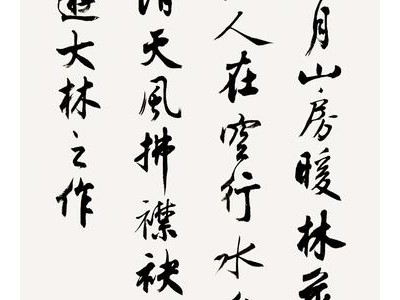 月山房暖林
人在空行水
清天風拂襟袂
遊大林之作